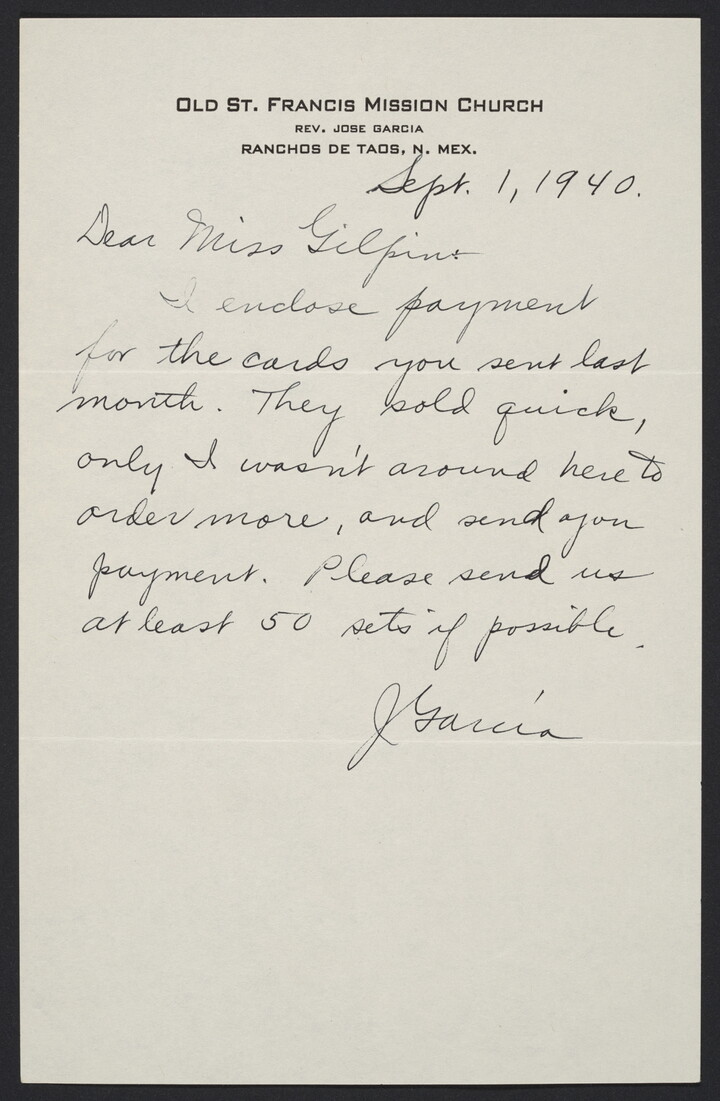 OLD ST. FRANCIS MISSION CHURCH
REV. JOSE GARCIA
RANCHOS DE TAOS, N. MEX.
Sept. 1, 1940.
Dear Miss Gilpin:
I enclose payment
for the cards you sent last
month. They sold quick,
only I wasn't around here to
order more, and send you
payment. Please send us
at least 50 sets if possible.
J García